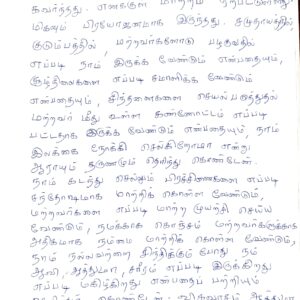 கவர்ந்தது. எனக்குள் மாற்றம் ஏற்பட்டுள்ளது.
மிகவும் பிரயோஜனமாக இருந்தது. சமுதாயத்தில்,
குடும்பத்தில், மற்றவர்களோடு பழகுவதில்
எப்படி நாம் இருக்க வேண்டும் என்பதையும்,
சூழ்நிலைகளை எப்படி சமாளிக்க வேண்டும்
என்பதையும், சிந்தனைகளை செயல் படுத்துதல்
மற்றவர் மீது உள்ள கண்ணோட்டம் எப்
பட்டதாக இருக்க வேண்டும் என்பதையும், நாம்
இலக்கை நோக்கி செல்கிறோமா என்று
ஆராயும் தருணமும் தெரிந்து கொண்டேன்.
நாம் கடந்து செல்லும் பிரச்சினைகளை எப்படி
சந்தோஷமாக மாற்றிக் கொள்ள வேண்டும்,
மற்றவர்களை எப்படி மாற்ற முயற்சி செய்ய
வேண்டும், நமக்காக கொஞ்சம் மற்றவர்களுக்காக
அதிகமாக நம்மை மாற்றிக் கொள்ள வேண்டும்,
நாம் நல்லவற்றை சிந்திக்கும் போது நம்
ஆவி, ஆத்துமா, சரீரம் எப்படி இருக்கிறது
எப்படி மகிழ்கிறது என்பதைப் பற்றியும்